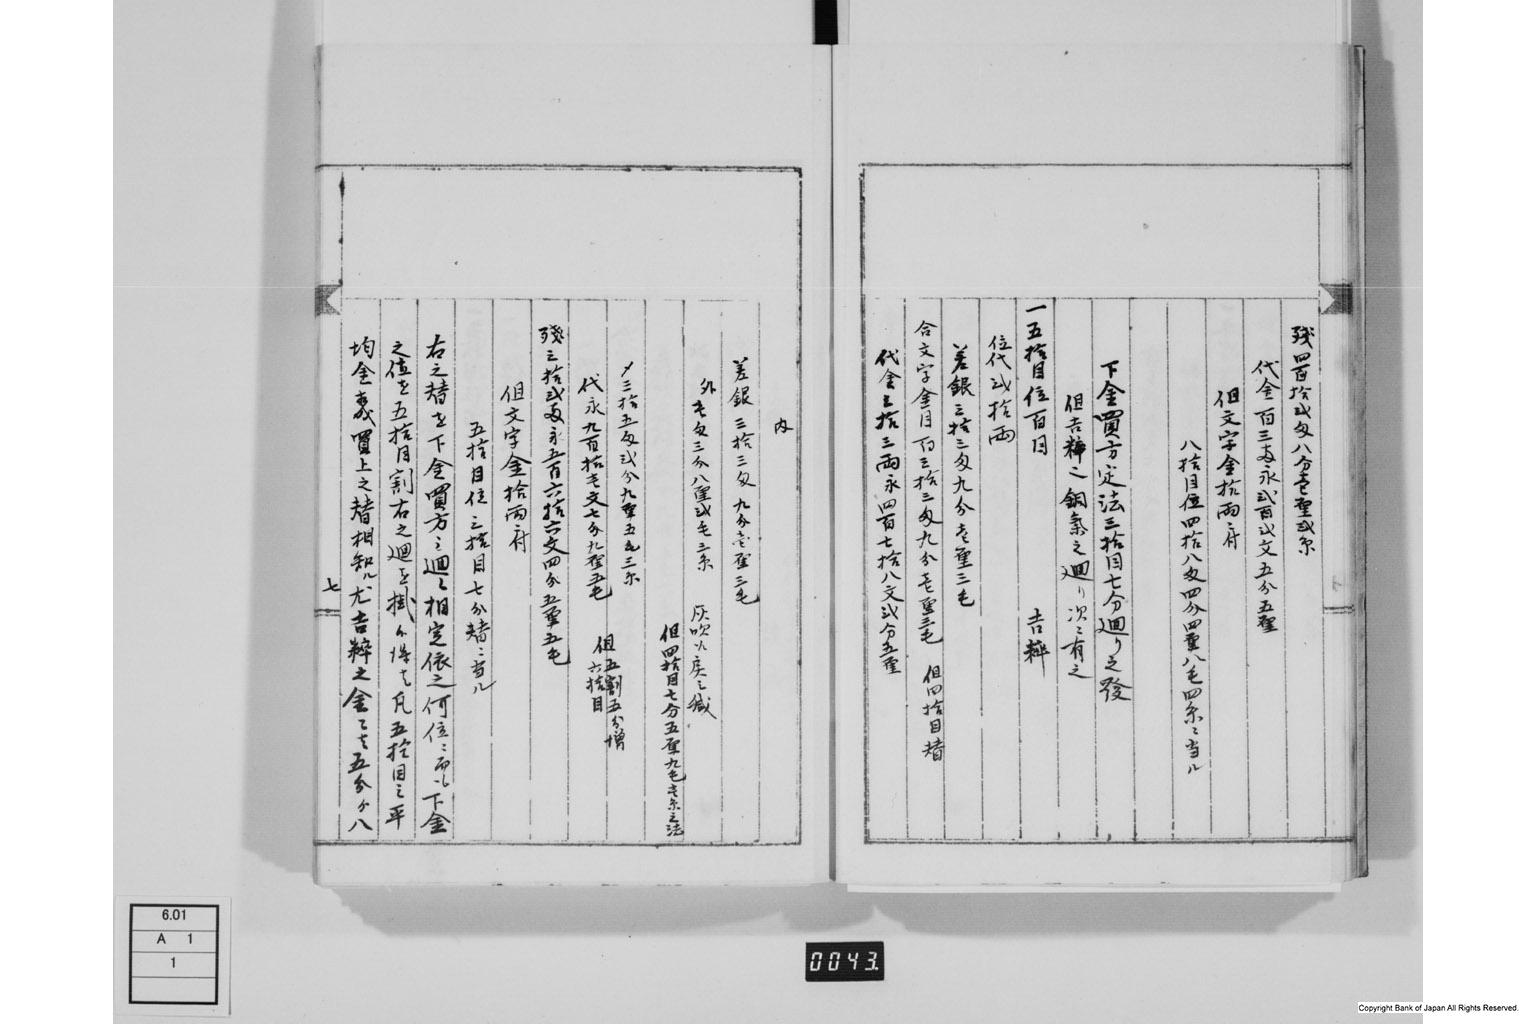 残四百拾弐匁八分壱厘弐糸
代金百三両永弐百弐文五分五厘
但文字金拾両ニ付
八拾目位四拾八匁四分四厘八毛四糸ニ当ル
下金買方定法三拾目七分廻り之發
但吉粹之銅氣之廻り次ニ有之
一五拾目位百目 吉粹
位代弐拾両
差銀三拾三匁九分壱厘三毛
合文字金目百三拾三匁九分壱厘三毛 但四拾目替
代金三拾三両永四百七拾八文弐分五厘
内
差銀三拾三匁九分壱厘三毛
外壱匁三分八厘弐毛三糸 灰吹ニ戻之減
但四拾目七分五厘九毛壱糸之法
〆三拾五匁弐分九厘五毛三糸
代永九百拾壱文七分九厘五毛 但五割五分増 六拾目
残三拾弐両永五百六拾六文四分五厘五毛
但文字金拾両ニ付
五拾目位三拾目七分替ニ当ル
右之替を下金買方之廻ニ相定依之何位ニ而も下金
之位を五拾目割右之廻を掛ケ候は凡五拾目之平
均金義買上之替相知ル尤吉粹之金ニは五分ケ八
七
6.01
A 1
1
0043.
Copyright Bank of Japan All Rights Reserved.